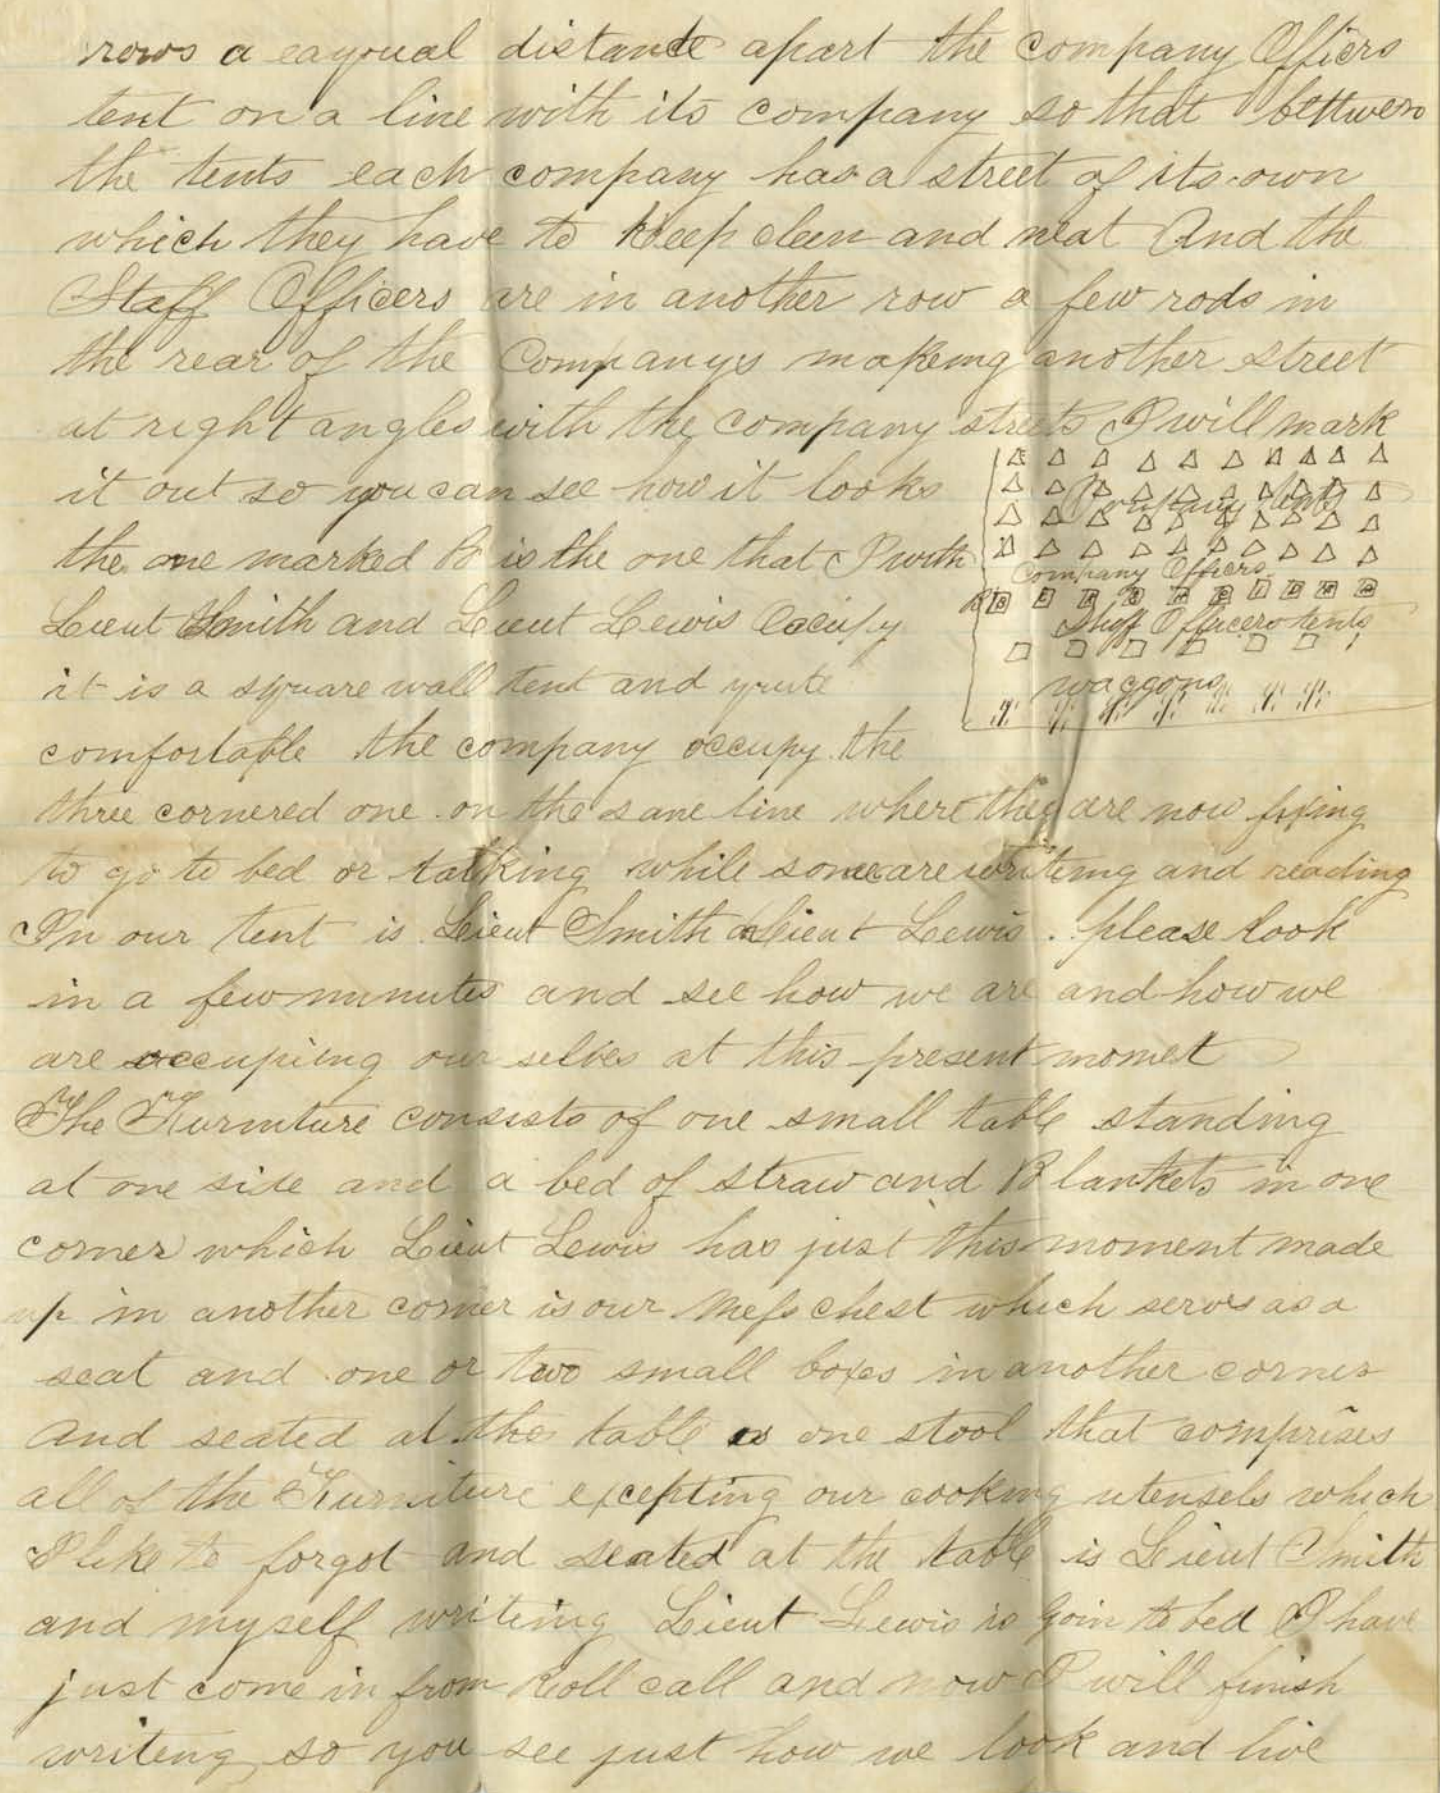 rows a eaqual distance apart the company Officers
tent on a line with its company so that bettween
the tents each company has a street of its own
which they have to keep cleen and neat And the
Staff Officers are in another row a few rods in
the rear of the Companys makeing another street
at right angles with the company streets I will mark
it out so you can see how it looks
Company tents
the one marked B is the one that I with
Company Officers
B
Lieut Smith and Lieut Lewis Occupy
Staff Officers tents
it is a square wall tent and quite
waggons
comfortable the company occupy the
three cornered one on the same line where they are now fixing
to go to bed or talking while some are writeing and reading
In our tent is Lieut Smith Lieut Lewis . please look
in a few minutes and see how we are and how we
are occupiing our selves at this present momet
The Furniture consists of one small table standing
at one side and a bed of straw and Blankets in one
corner which Lieut Lewis has just this moment made
up in another corner is our Mess chest which serves as a
seat and one or two small boxes in another corner
And seated at the table is one stool that comprises
all of the Furniture excepting our cooking utensels which
I like to forgot and seated at the table is Lieut Smith
and myself writeing Lieut Lewis is goin to bed I have
just come in from Roll call and now I will finish
writeng so you see just how we look and live